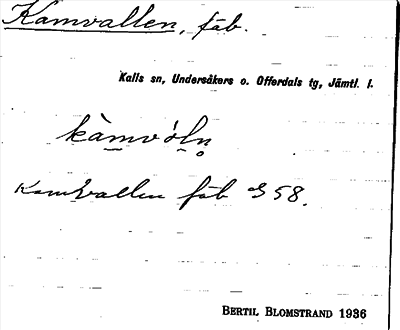 Kamvallen, fäb.
Kalls sn, Undersåkers o. Offerdals tg, Jämtl. l.
kàmvòl̥n̥
Kamvallen fäb G 58.
BERTIL BLOMSTRAND 1936